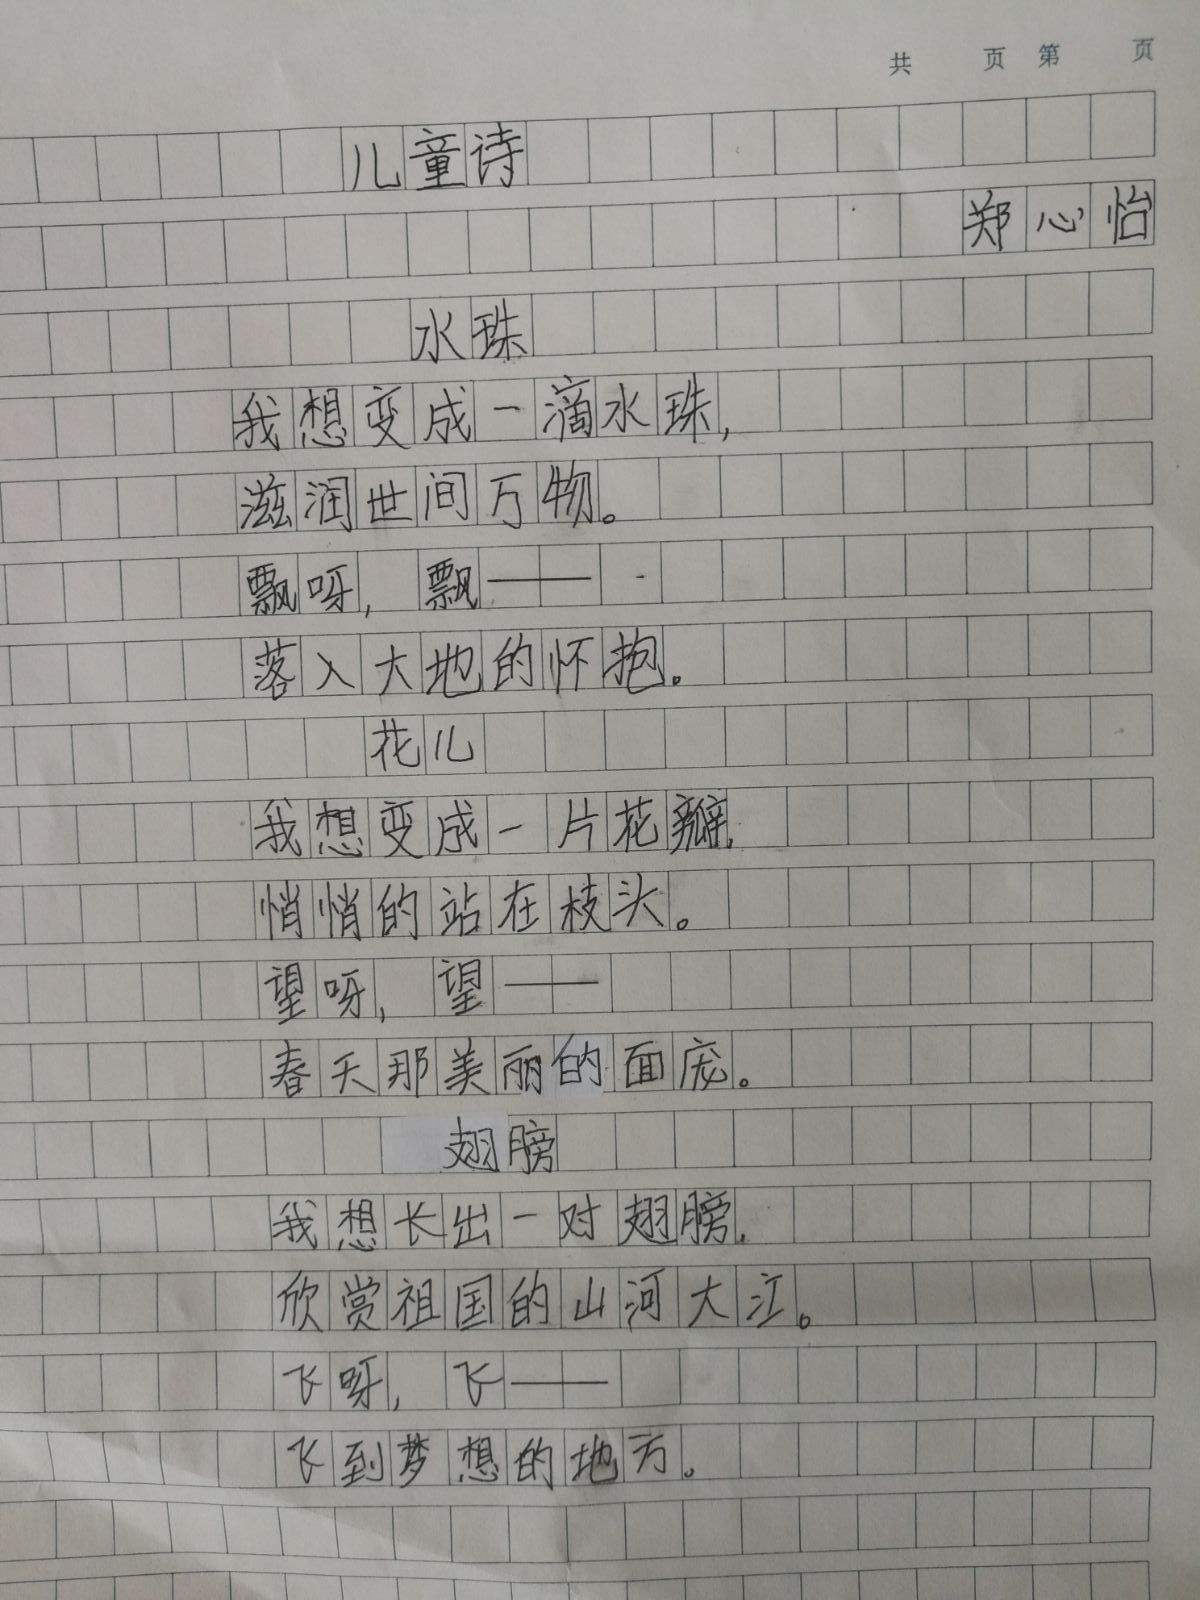 共 页 第 页
儿童诗
郑心怡
水珠
我想变成一滴水珠,
滋润世间万物。
飘呀,飘——
落入大地的怀抱。
花儿
我想变成一片花瓣,
悄悄的站在枝头。
望呀,望——
春天那美丽的面庞。
翅膀
我想长出一对翅膀,
欣赏祖国的山河大江。
飞呀,飞——
飞到梦想的地方。